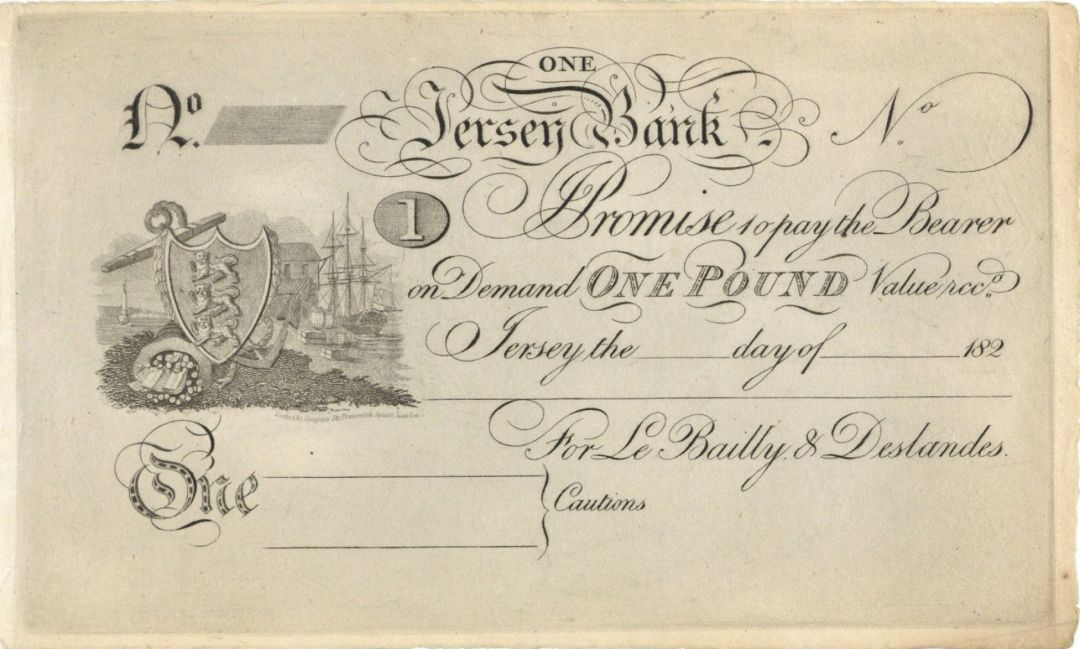 ONE
No. Jersey Bank. No.
1 I Promise to pay the Bearer
on Demand ONE POUND Value recd.
Jersey, the day of 182
For Le Bailly & Deslandes.
One
Cautions